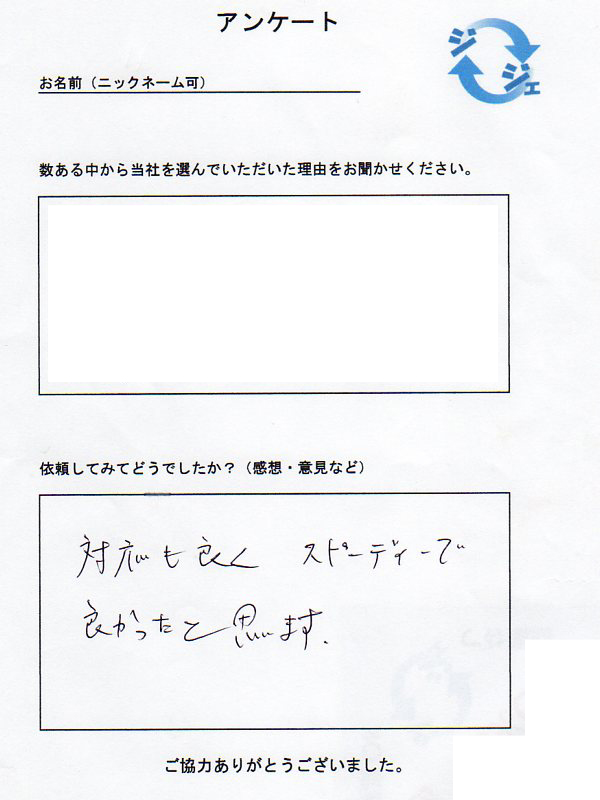 アンケート
ジ
ジェ
お名前（ニックネーム可）
数ある中から当社を選んでいただいた理由をお聞かせください。
依頼してみてどうでしたか？（感想・意見など）
対応も良く スピーディーで
良かったと思います.
ご協力ありがとうございました。